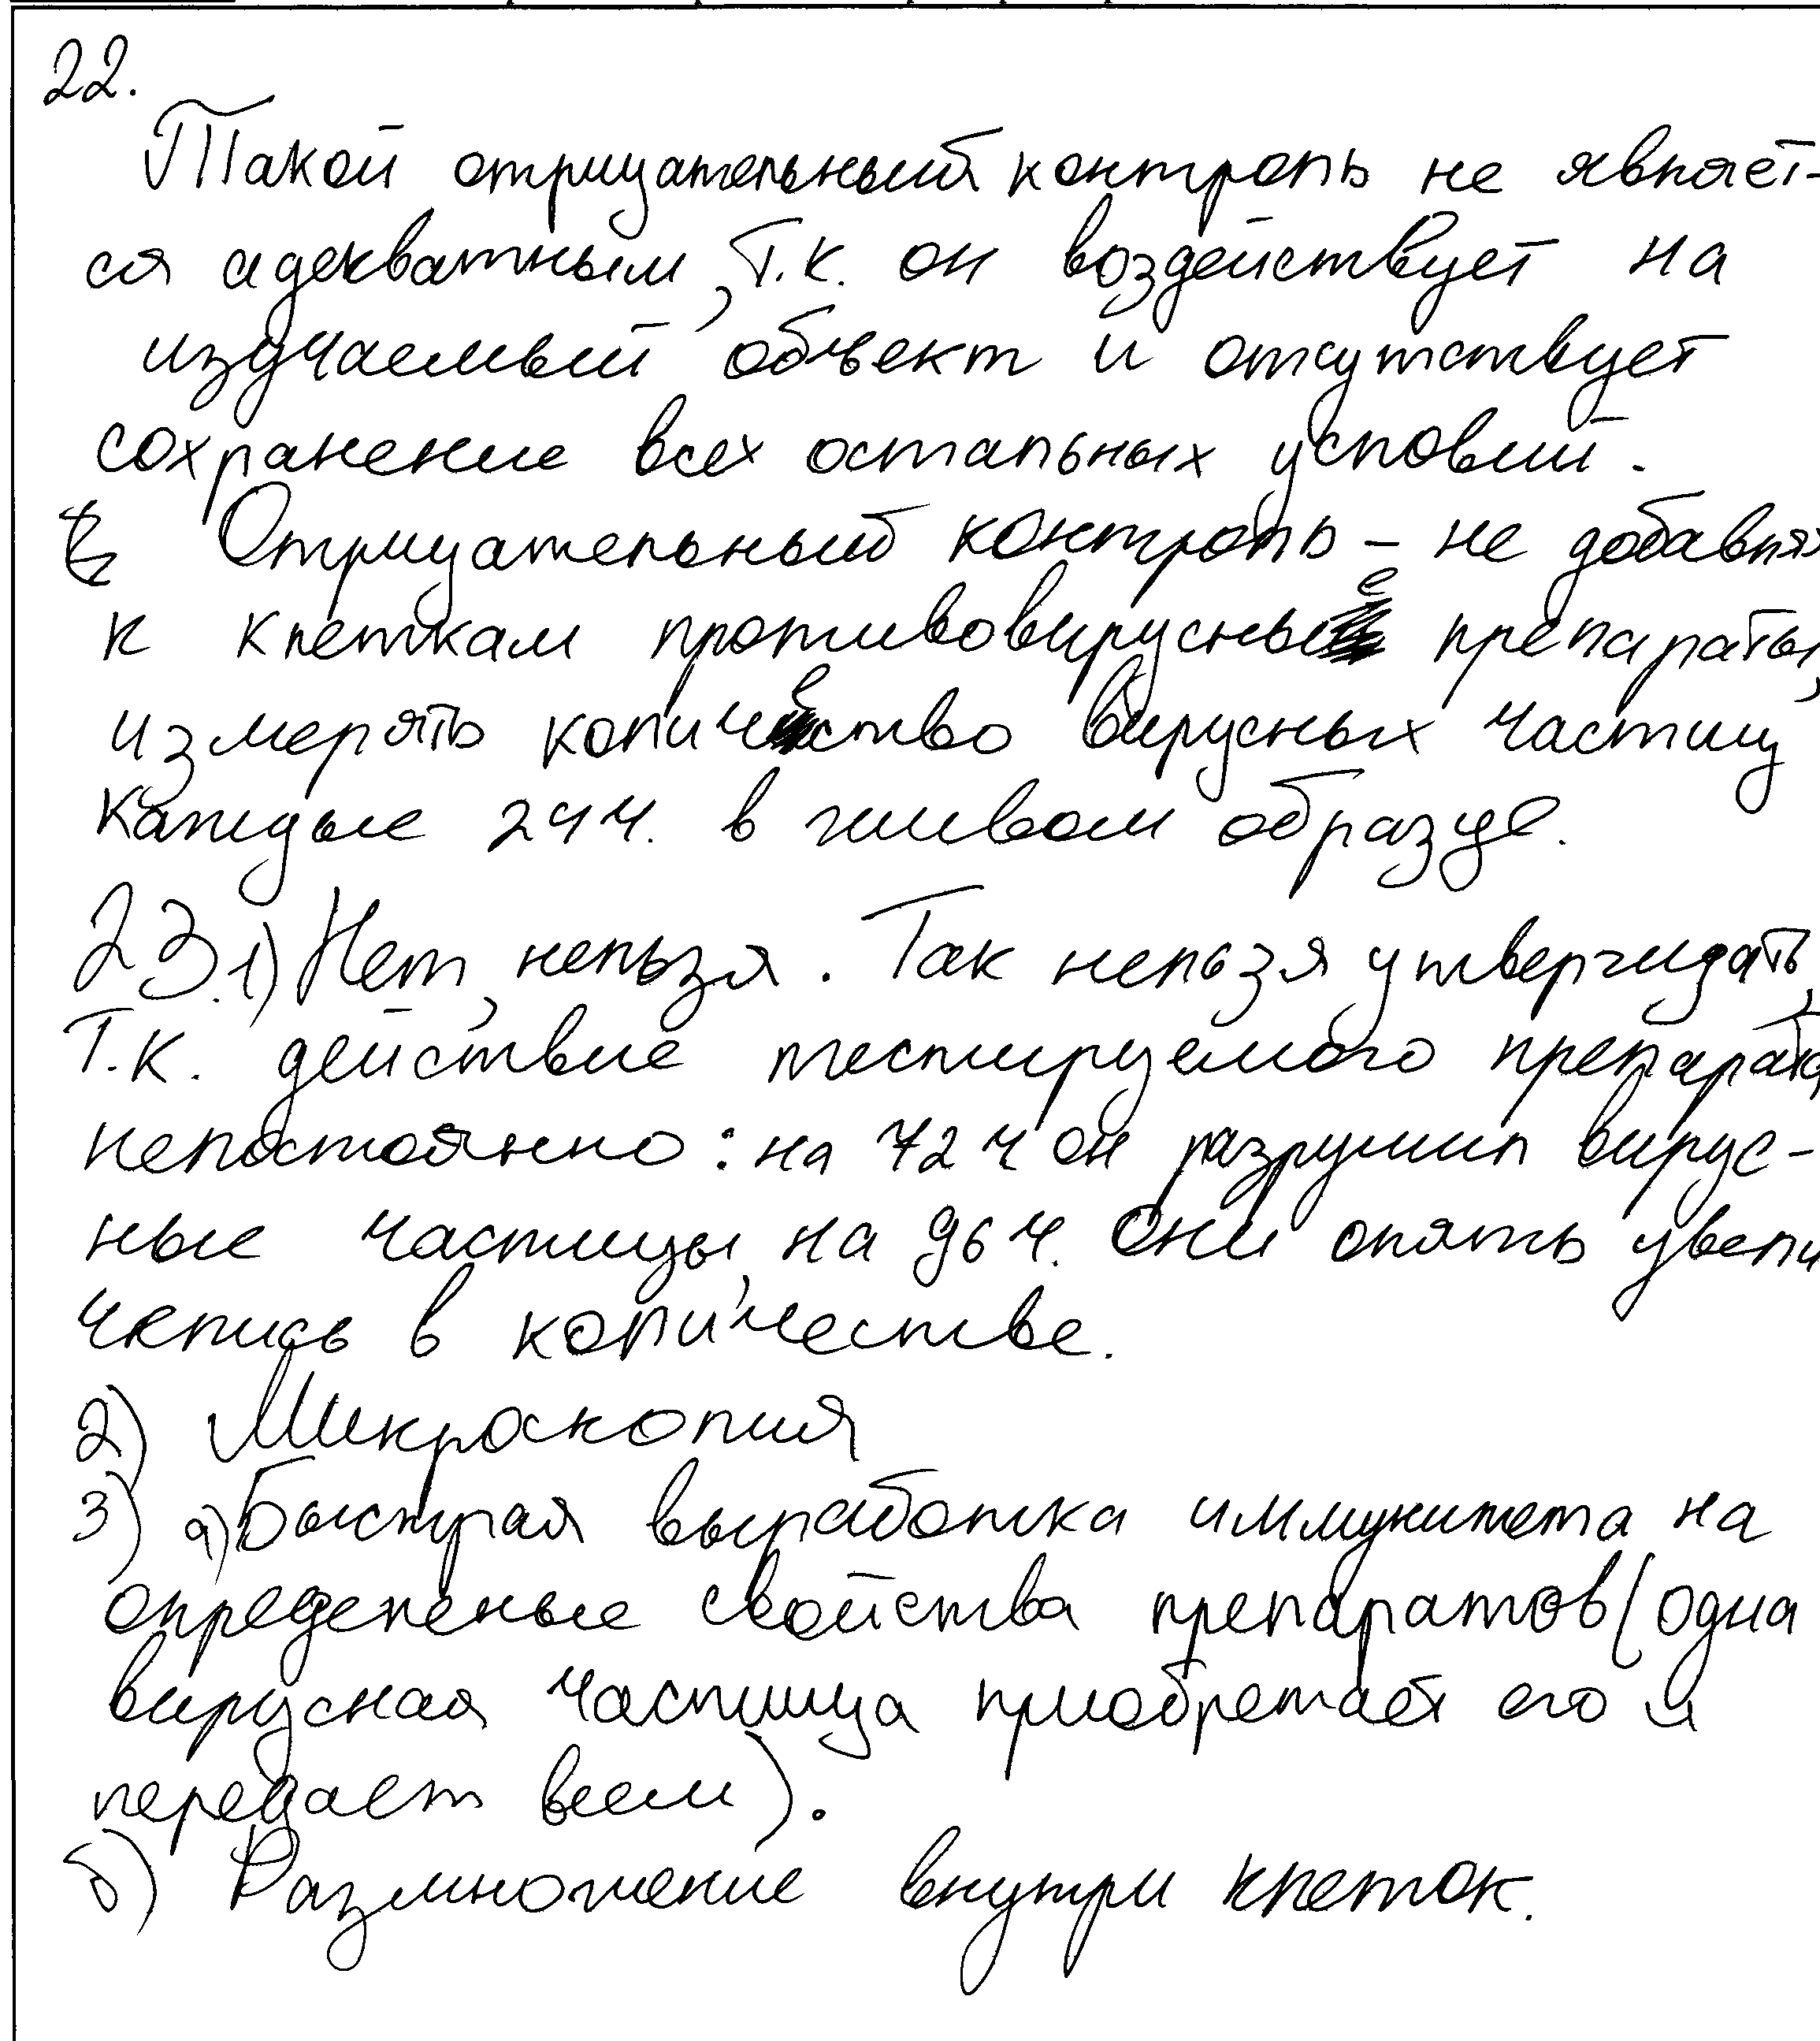 22.
Такой отрицательный контроль не являет-
ся адекватным, т.к. он воздействует на
изучаемый объект и отсутствует
сохранение всех остальных условий.
Отрицательный контроль – не добавля
к клеткам противовирусные препараты,
измерять количество вирусных частиц
каждые 24 ч. в живом образце.
23. 1) Нет, нельзя. Так нельзя утверждать,
т.к. действие тестируемого препарата
непостоянно: на 72 ч он разрушил вирус-
ные частицы, на 96 ч. они опять увели
чились в количестве.
2) Микроскопия
3) а) Быстрая выработка иммунитета на
определеные свойства препаратов (одна
вирусная частица приобретает его и
передает всем).
б) Размножение внутри клеток.